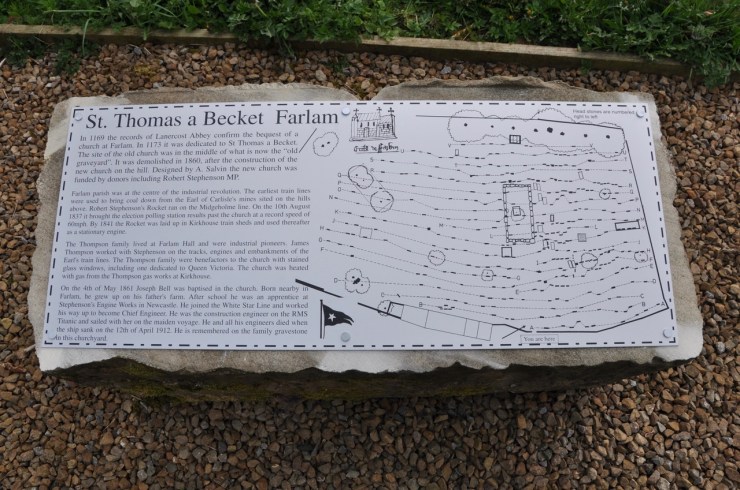 St. Thomas a Becket Farlam
In 1169 the records of Lanercost Abbey confirm the bequest of a
church at Farlam. In 1173 it was dedicated to St Thomas a Becket.
The site of the old church was in the middle of what is now the "old
graveyard". It was demolished in 1860, after the construction of the
new church on the hill. Designed by A. Salvin the new church was
funded by donors including Robert Stephenson MP.
Farlam parish was at the center of the industrial revolution. The earliest train lines
were used to bring coal down from the Earl of Carlisle's mines sited on the hills
above. Robert Stephenson's Rocket ran on the Midgeholme line. On the 10th August
1837 it brought the election polling station results past the church at a record speed of
60mph. By 1841 the Rocket was laid up in Kirkhouse train sheds and used thereafter
as a stationary engine.
The Thompson family lived at Farlam Hall and were industrial pioneers. James
Thompson worked with Stephenson on the tracks, engines and embankments of the
Earl's train lines. The Thompson family were benefactors to the church with stained
glass windows, including one dedicated to Queen Victoria. The church was heated
with gas from the Thompson gas works at Kirkhouse.
On the 4th of May 1861 Joseph Bell was baptised in the church. Born nearby in
Farlam, he grew up on his father's farm. After school he was an apprentice at
Stephenson's Engine Works in Newcastle. He joined the White Star Line and worked
his way up to become Chief Engineer. He was the construction engineer on the RMS
Titanic and sailed with her on the maiden voyage. He and all his engineers died when
the ship sank on the 12th of April 1912. He is remembered on the family gravestone
in this churchyard.
Head stones are numbered
right to left
You are here